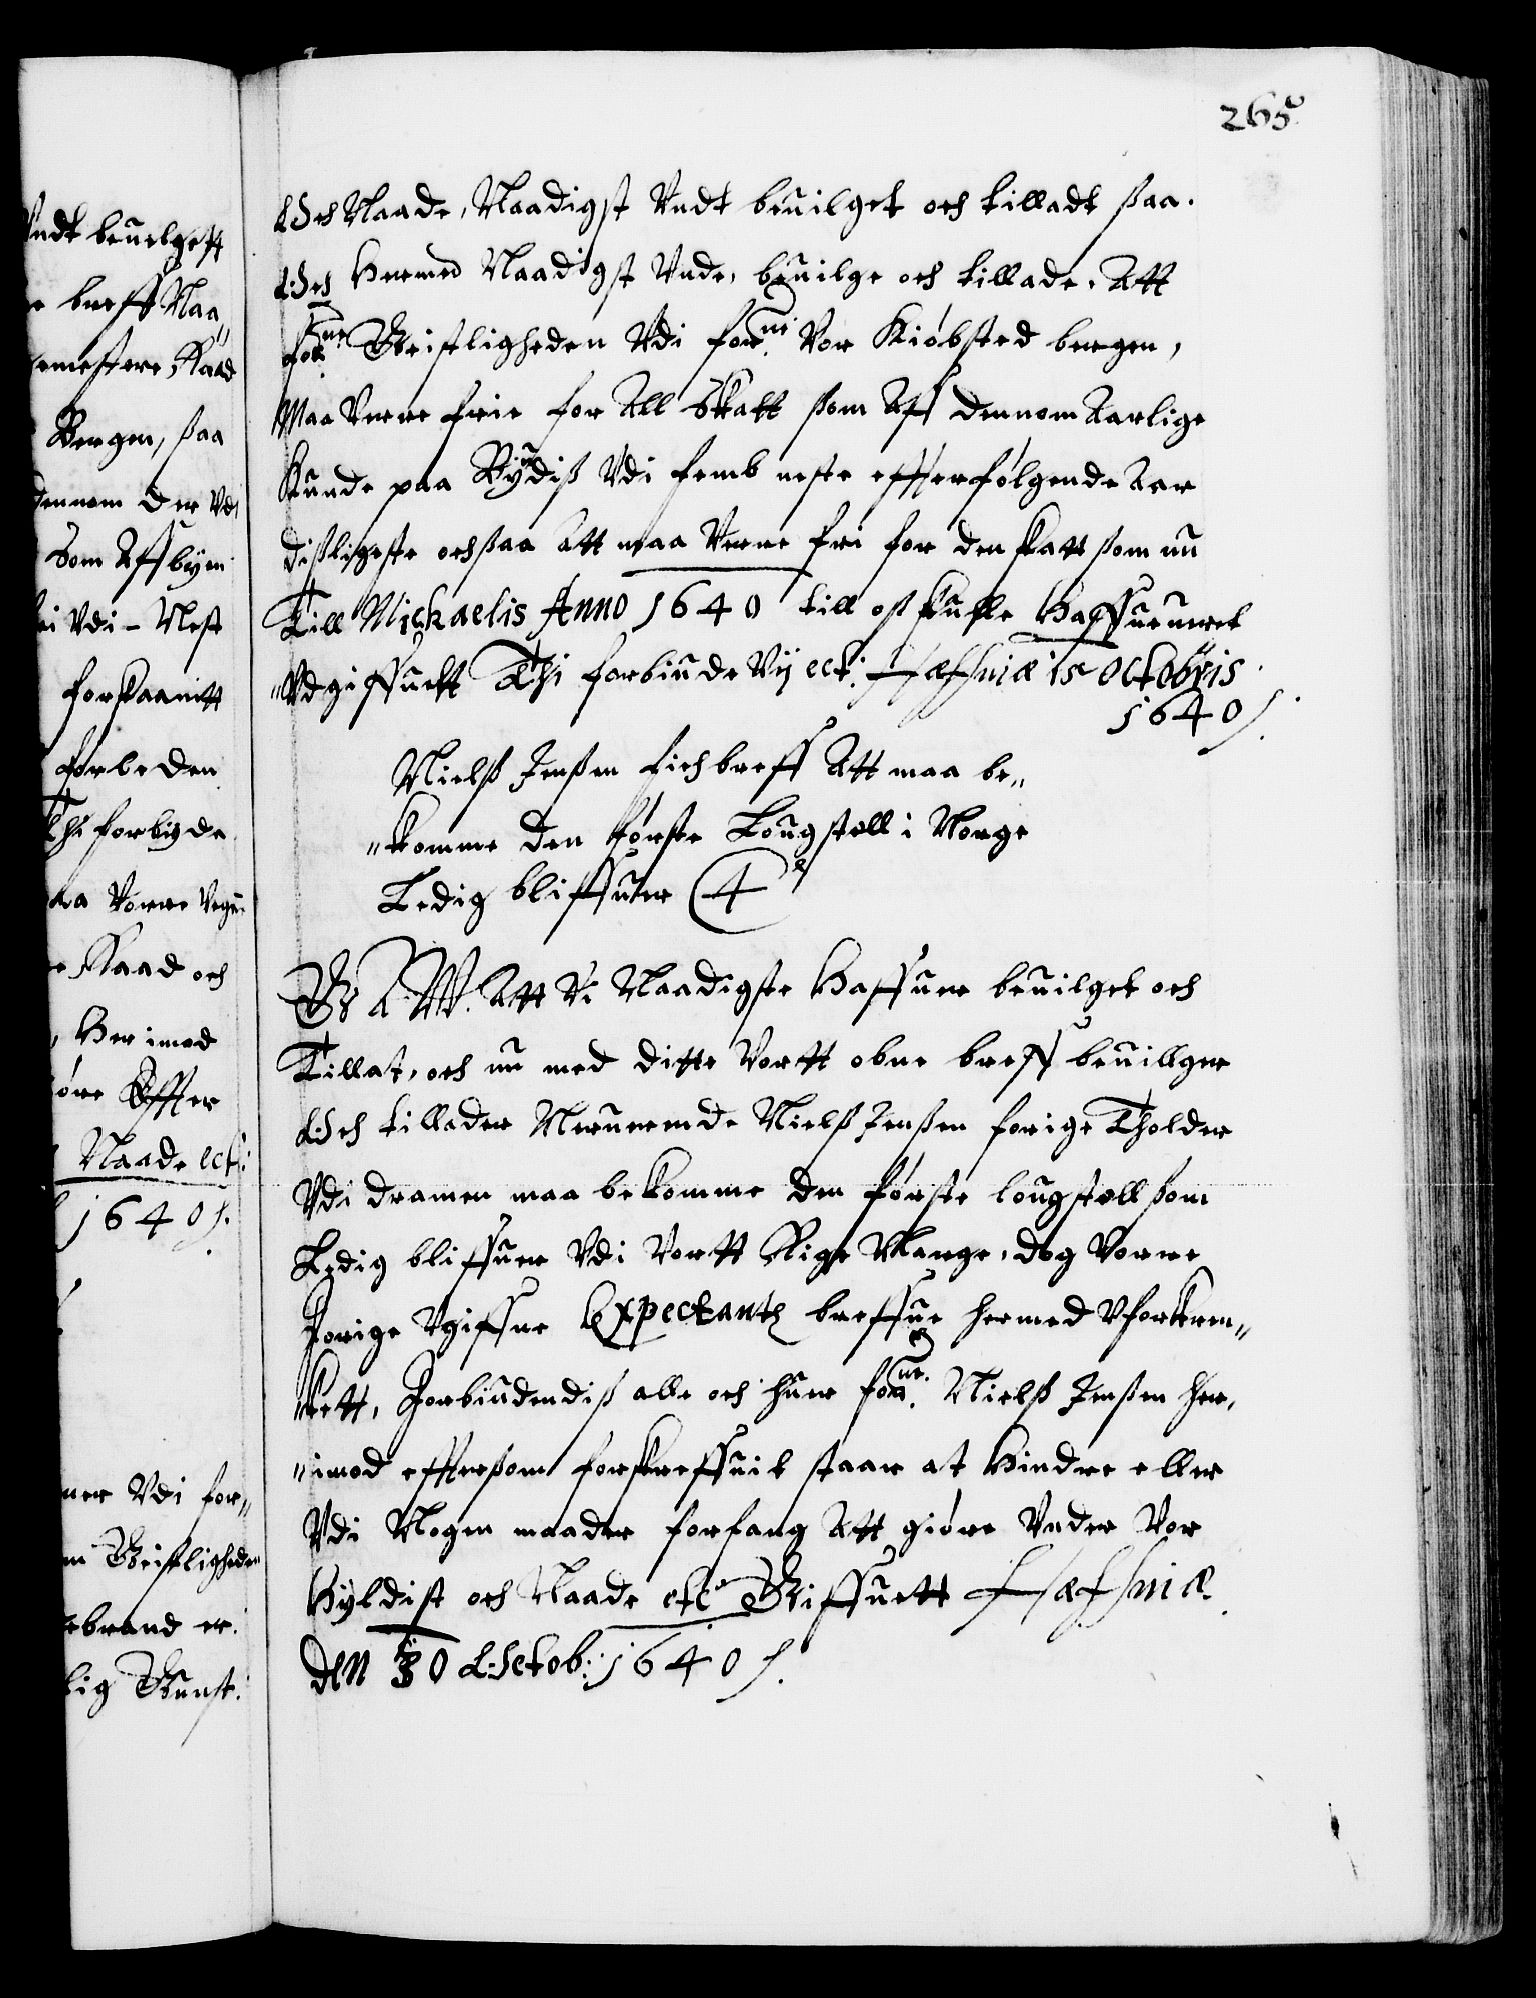 265
Och Naade, Naadigst Undt beuilget och tilladt ßaa.
Och Hermed Naadigst Unde, beuilge och tillade, Att
forne Geistligheden Udi forne Vor Kiøbsted bergen,
Maa Verre frie for All Skatt ßom Aff dennom Aarlige
Kunde paa Bÿdiß Udi femb neste effterfølgende Aar
dißligeste ochßaa Att maa Verre fri for den skatt ßom nu
Till Michaelis Anno 1640 till oß skulle Haffue weret
"Udgiffuett Thi forbiude Vij ect: Haffniæ 15 Octobris
1640 /.
Nielß Jenßen fich breff Att maa be„
„komme den første Lougstoell i Norge
Ledig bliffuer
G A W. Att Vi Naadigste Haffuer beuilget och
Tillat, och nu med dette Vortt obne breff beuillger
Och tillader Neruerende Nielß Jenßen forige Tholder
Udi dramen maa bekomme den første lougstoell ßom
Ledig bliffuer Udi Vortt Rige Norge, dog Vorre
forige Ugiffne Expectantz breffue hermed Uforkren„
kett, Forbiudendiß alle och huer forne Nielß Jenßen her,
„imod effterßom forskreffuit staar at Hindre eller
Udi Nogen maader forfang Att giøre Under Vor
Hÿldist och Naade etc Giffuett Haffniæ
den 30 Octob: 1640 /.
Undt beuelgett
breff Naa„
emestere Raad
Bergen, ßaa
dennom der Udi
Som Aff byen
Udi - Nest
forskaanitt
forbeden
Thi forbyde
Vorre
Raad och
Her imod
Effter
Naade ect:
1640 /.
Udi for„
Geistligheden
er
Gunst